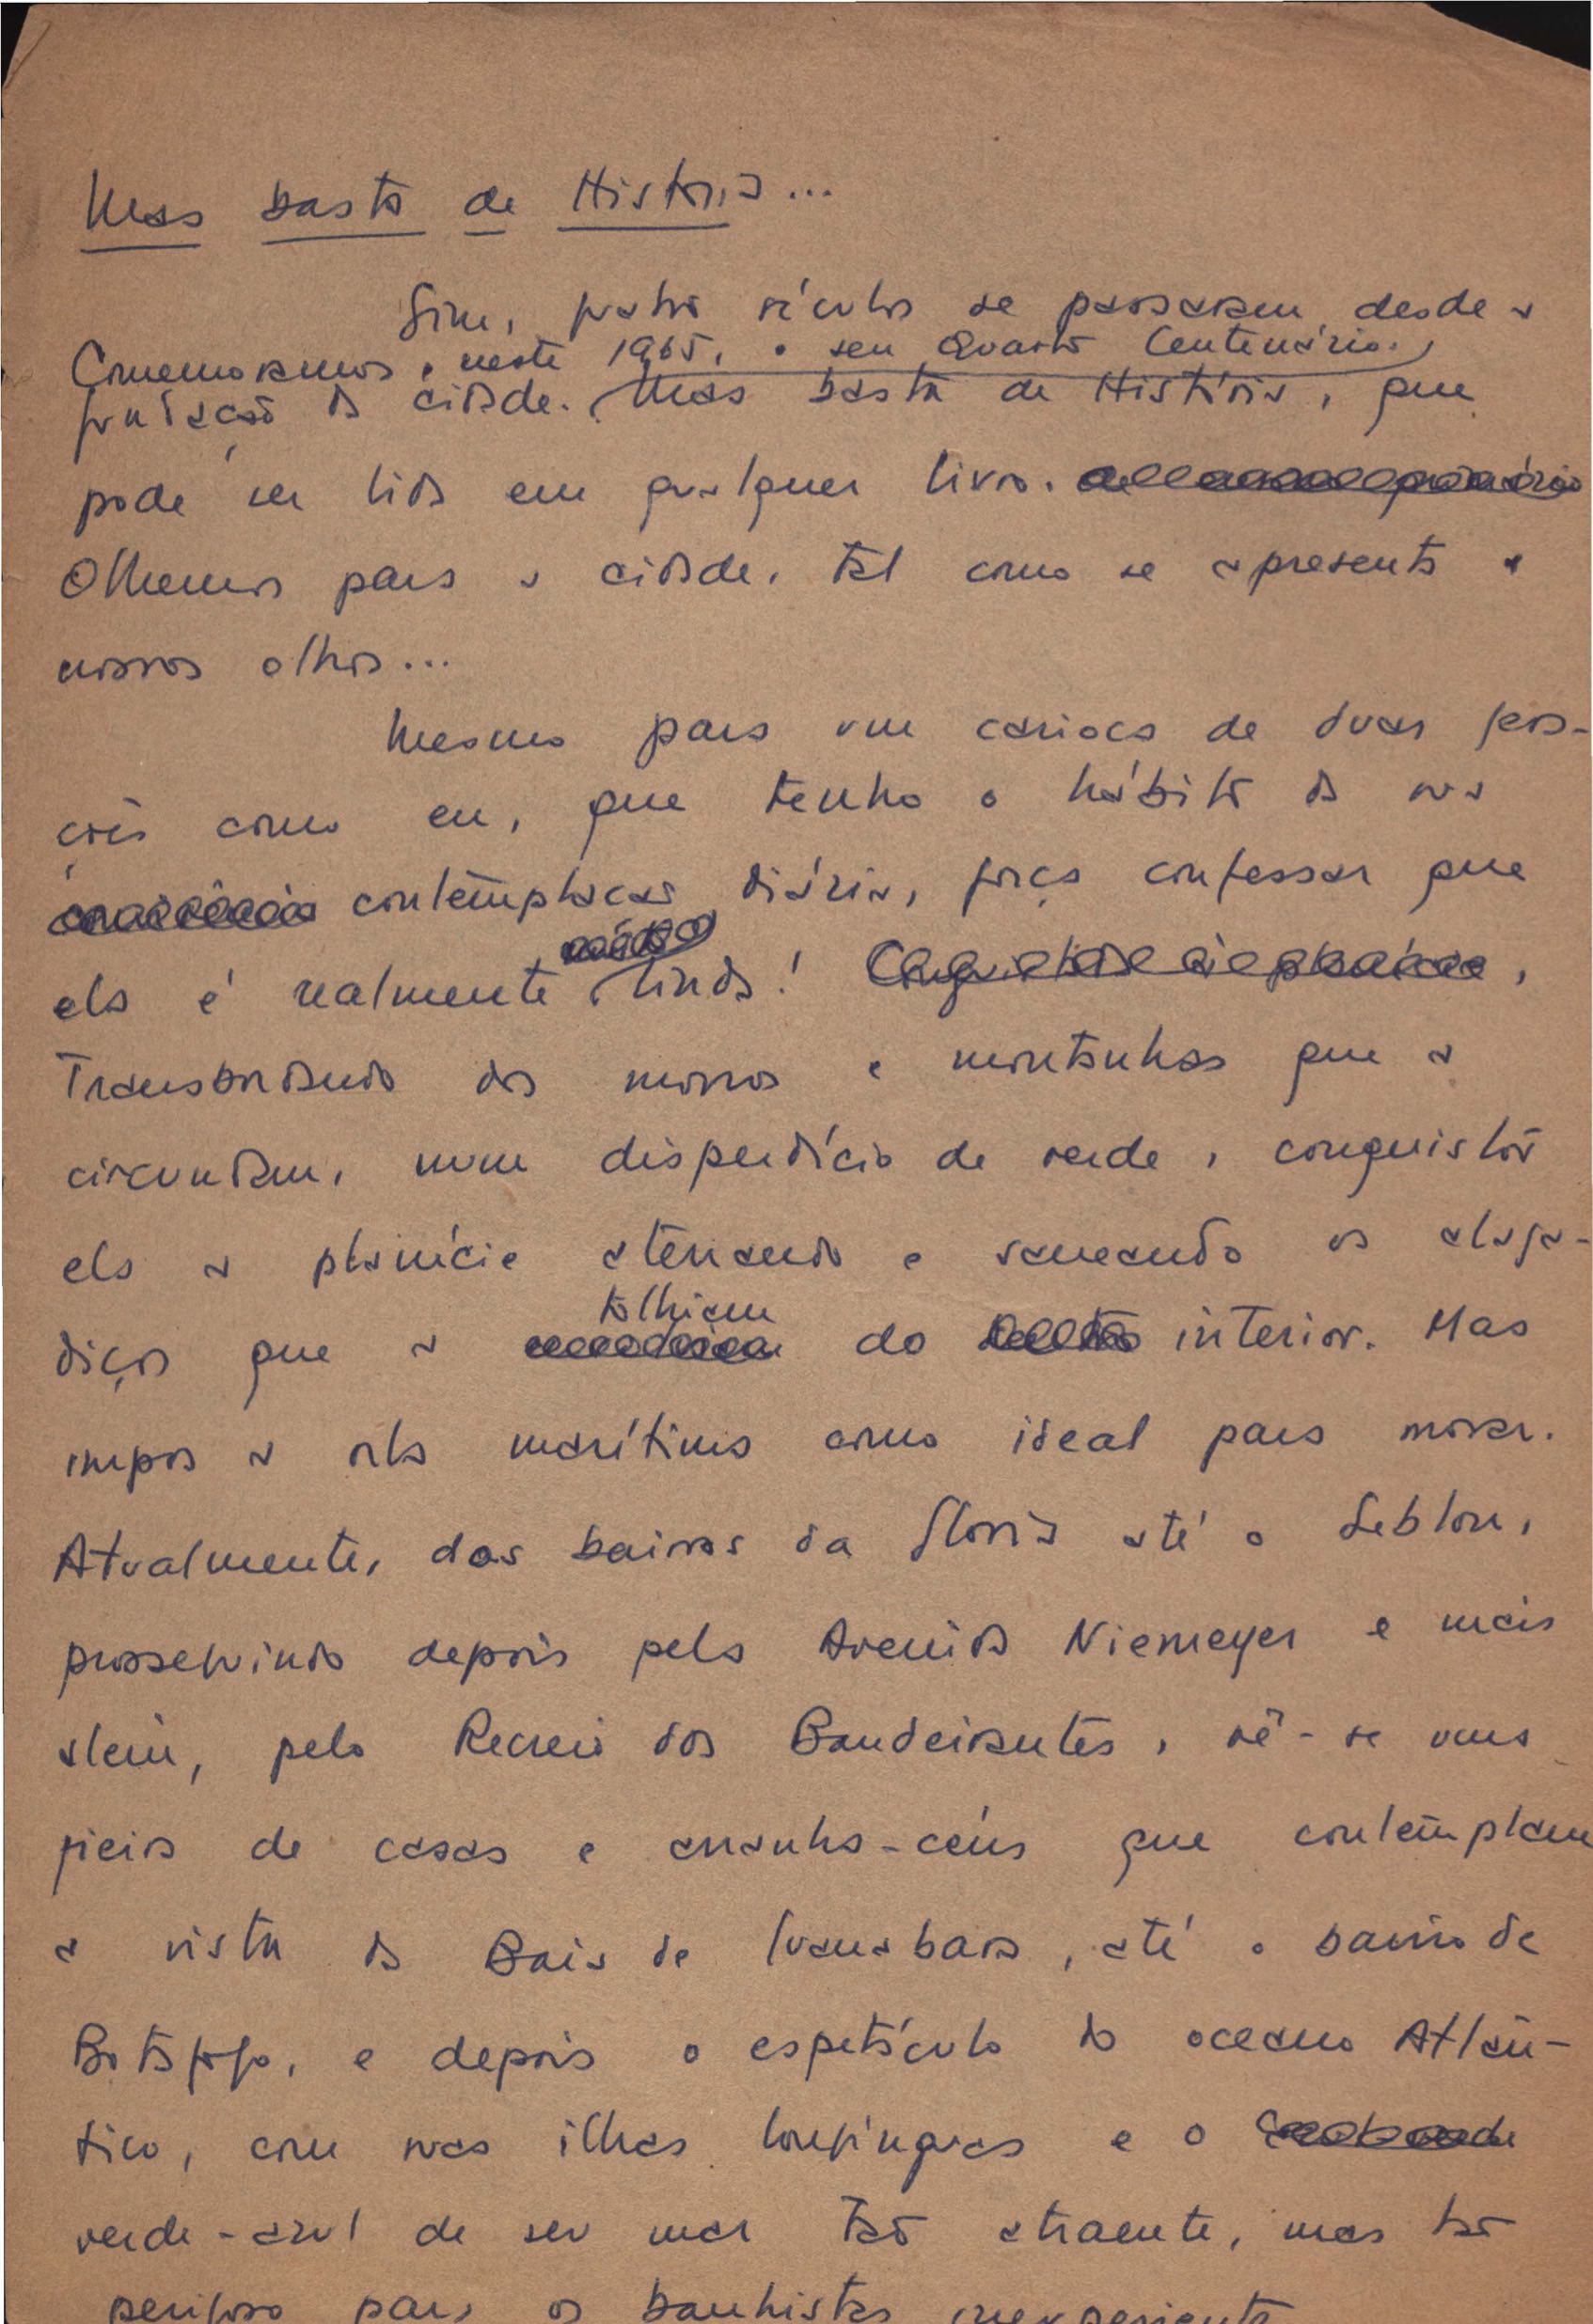 Mas basta de História...
Sim, quatro séculos se passaram desde a
Comemoramos, neste 1965, o seu Quarto Centenário.
fundação da cidade. Mas basta de História, que
pode ser lida em qualquer livro.
Olhemos para a cidade, tal como se apresenta a
nossos olhos...
Mesmo para um carioca de duas gera-
ções como eu, que tenho o hábito da sua
contemplação diária, força confessar que
ela é realmente linda!
Transbordando dos morros e montanhas que a
circundam, num disperdício de verde, conquistou
ela a planície aterrando e saneando os alaga-
diços que a tolhiam do interior. Mas
impos a orla marítima como ideal para morar.
Atualmente, dos bairros da Gloria até o Leblon,
prosseguindo depois pela Avenida Niemeyer e mais
alem, pelo Recreio dos Bandeirantes, vê-se uma
fieira de casas e arranha-céus que contemplam
a vista da Baia de Guanabara, até o bairro de
Botafogo, e depois o espetáculo do oceano Atlân-
tico, com suas ilhas longinquas e o
verde-azul de seu mar tão atraente, mas tão
perigoso para os banhistas inexperientes